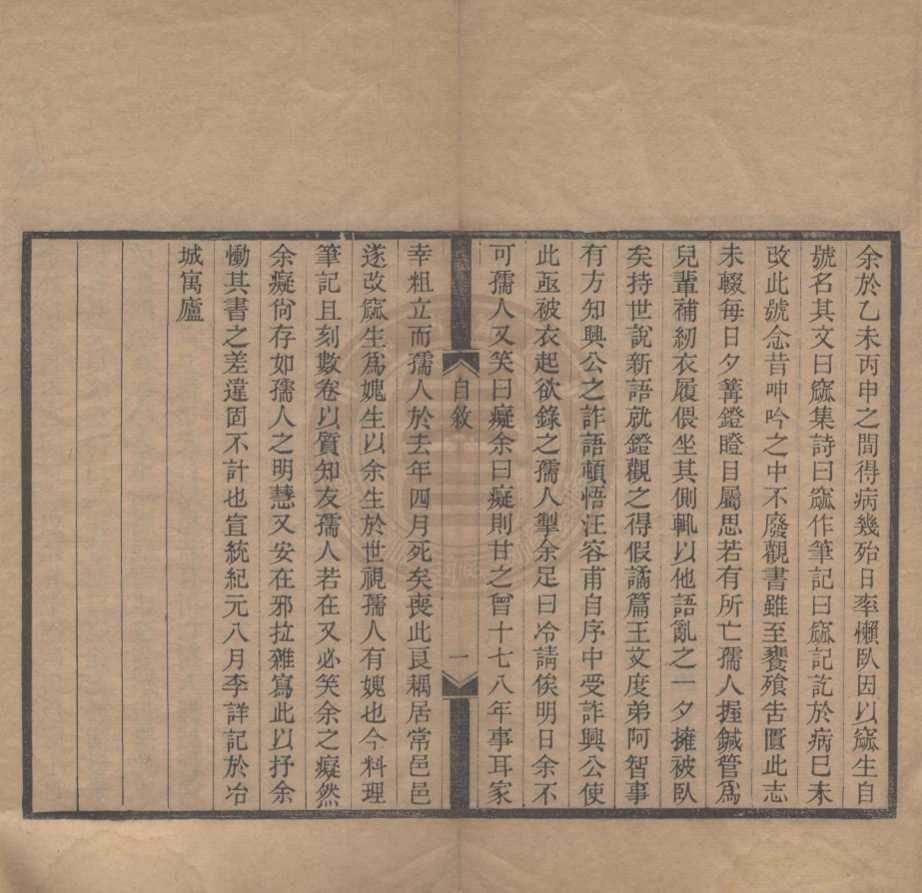 余於乙未丙申之間得病幾殆日率懶臥因以窳生自
號名其文曰窳集詩曰窳作筆記曰窳記訖於病巳未
改此號念昔呻吟之中不廢觀書雖至饔飱吿匱此志
未輟每日夕篝鐙瞪目屬思若有所亡孺人握鍼管爲
兒輩補紉衣履偎坐其側輒以他語亂之一夕擁被臥
矣持世說新語就鐙觀之得假譎篇王文度弟阿智事
有方知興公之詐語頓悟汪容甫自序中受詐興公使
此亟被衣起欲錄之孺人掣余足曰冷請俟明日余不
可孺人又笑曰癡余曰癡則甘之曾十七八年事耳家
自敘
一
幸粗立而孺人於去年四月死矣喪此良耦居常邑邑
遂改窳生爲媿生以余生於世視孺人有媿也今料理
筆記且刻數卷以質知友孺人若在又必笑余之癡然
余癡尙存如孺人之明慧又安在邪拉雜寫此以抒余
慟其書之差違固不計也宣統紀元八月李詳記於冶
城寓廬